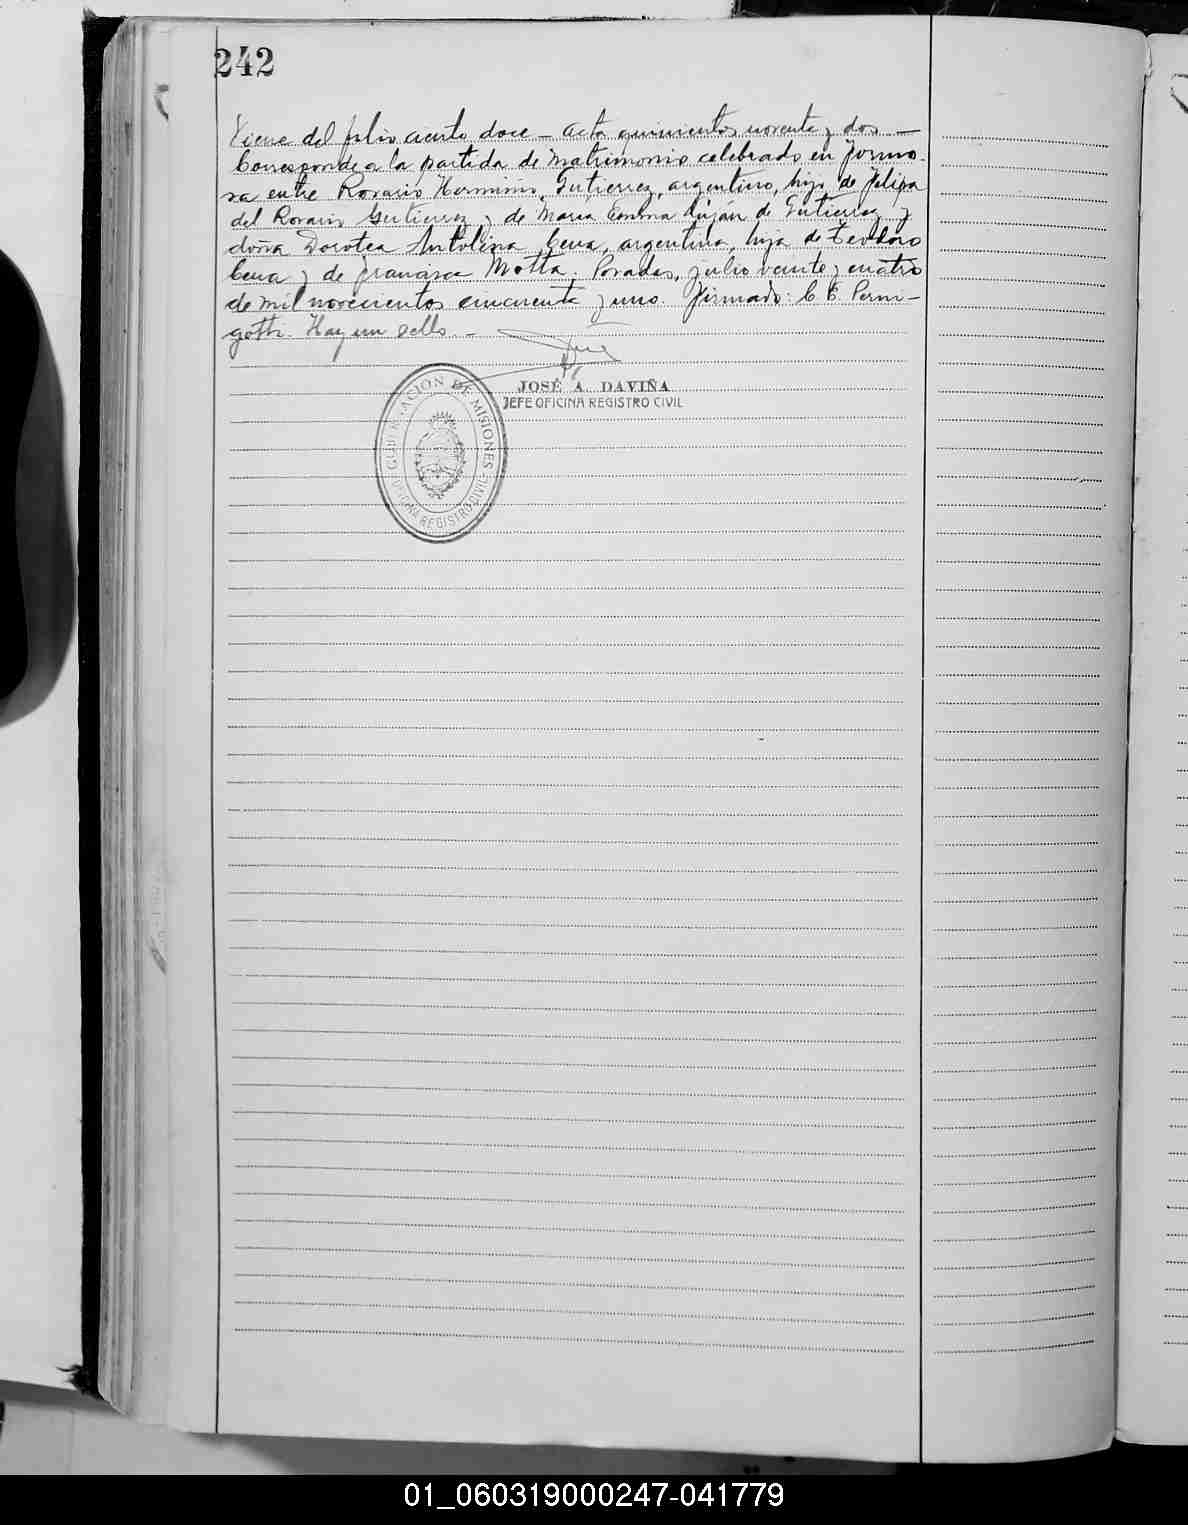 242
Viene del folio ciento doce - Acta quinientos noventa y dos -
Corresponde a la partida de matrimonio celebrado en Formo-
sa entre Rosario Herminio Gutierrez, argentino, hijo de Felipa
del Rosario Gutierrez y de María Luján de Gutierrez y
doña Dorotea Antolina Cena, argentina, hija de Teodoro
Cena y de Francisca Motta. Posadas, julio veinte y cuatro
de mil novecientos cincuenta y uno. Firmado: C. E. Perni-
gotti. Hay un sello. -
JOSÉ A. DAVIÑA
JEFE OFICINA REGISTRO CIVIL
GOBERNACION DE MISIONES
OFICINA REGISTRO CIVIL
01_060319000247-041779